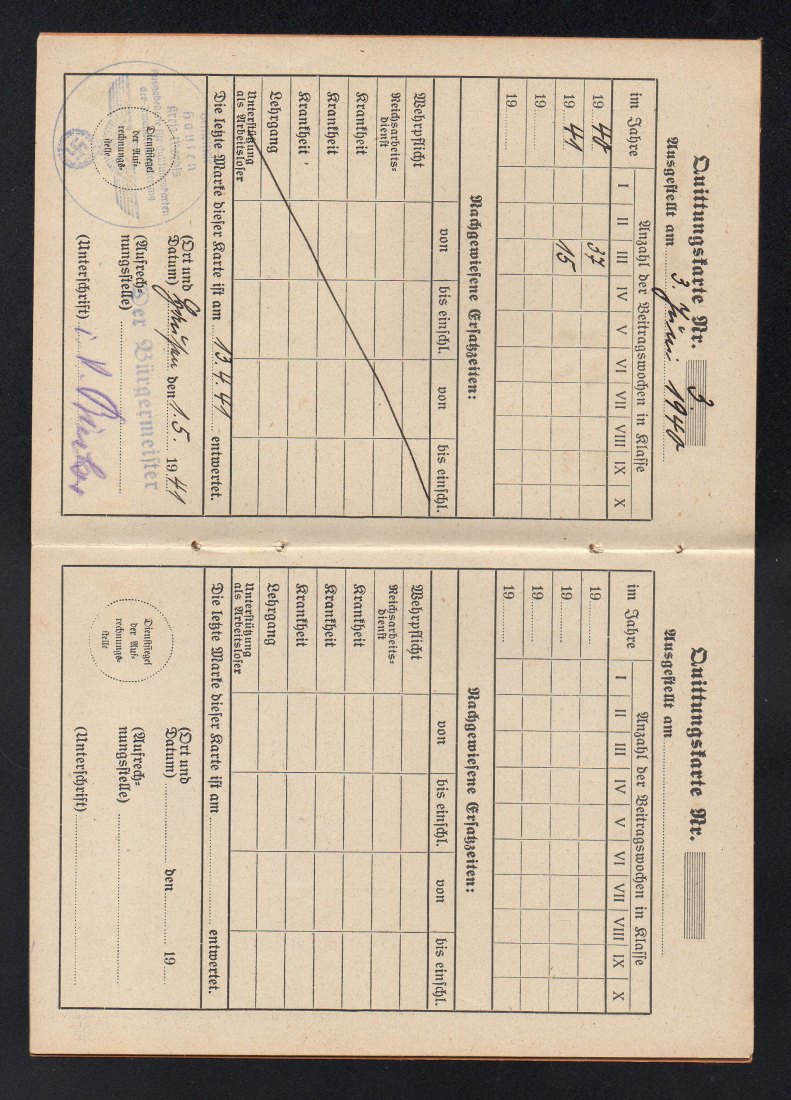 Quittungskarte Nr. 3.
Ausgestellt am 3. Juni 1940
im Jahre
Anzahl der Beitragswochen in Klasse
I II III IV V VI VII VIII IX X
19 40 37
19 41 15
19
19
Nachgewiesene Ersatzzeiten:
von bis einschl. von bis einschl.
Wehrpflicht
Reichsarbeits-
dienst
Krankheit
Krankheit
Krankheit
Lehrgang
Unterstützung
als Arbeitsloser
Die letzte Marke dieser Karte ist am 13.4.41 entwertet.
Dienstsiegel
der Auf-
rechnungs-
stelle
(Ort und
Datum) den 1.5. 19 41
Der Bürgermeister
(Aufrech-
nungsstelle)
(Unterschrift) i. V.
Quittungskarte Nr.
Ausgestellt am
im Jahre
Anzahl der Beitragswochen in Klasse
I II III IV V VI VII VIII IX X
19
19
19
19
Nachgewiesene Ersatzzeiten:
von bis einschl. von bis einschl.
Wehrpflicht
Reichsarbeits-
dienst
Krankheit
Krankheit
Krankheit
Lehrgang
Unterstützung
als Arbeitsloser
Die letzte Marke dieser Karte ist am entwertet.
Dienstsiegel
der Auf-
rechnungs-
stelle
(Ort und
Datum) den 19
(Aufrech-
nungsstelle)
(Unterschrift)